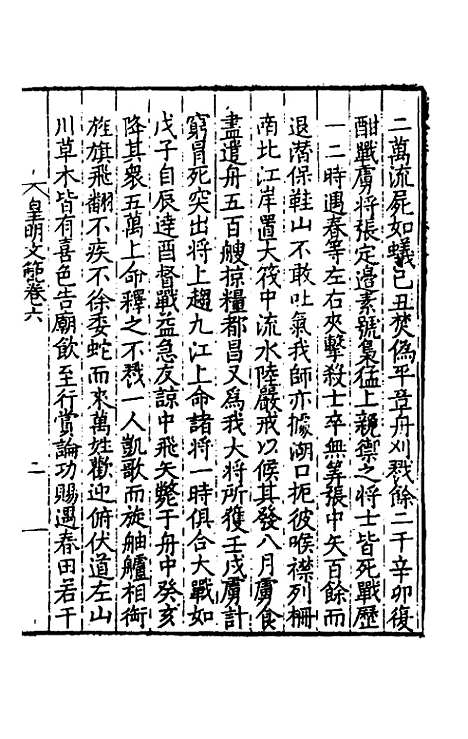 二萬流屍如蟻己丑焚偽平章舟刈戮餘二千辛卯復
酣戰虜將張定邊素號梟猛上親禦之將士皆死戰歷
一二時遇春等左右夾擊殺士卒無筭張中矢百餘而
退潛保鞋山不敢吐氣我師亦據湖口扼彼喉襟列柵
南北江岸置大筏中流水陸嚴戒以候其發八月虜食
盡遣舟五百艘掠糧都昌又為我大將所獲壬戌虜計
窮冒死突出將上趨九江上命諸將一時俱合大戰如
戊子自辰達酉督戰益急友諒中飛矢斃于舟中癸亥
降其衆五萬上命釋之不戮一人凱歌而旋舳艫相銜
旌旗飛翻不疾不徐委蛇而來萬姓歡迎俯伏道左山
川草木皆有喜色告廟飲至行賞論功賜遇春田若干
皇明文範卷六
二